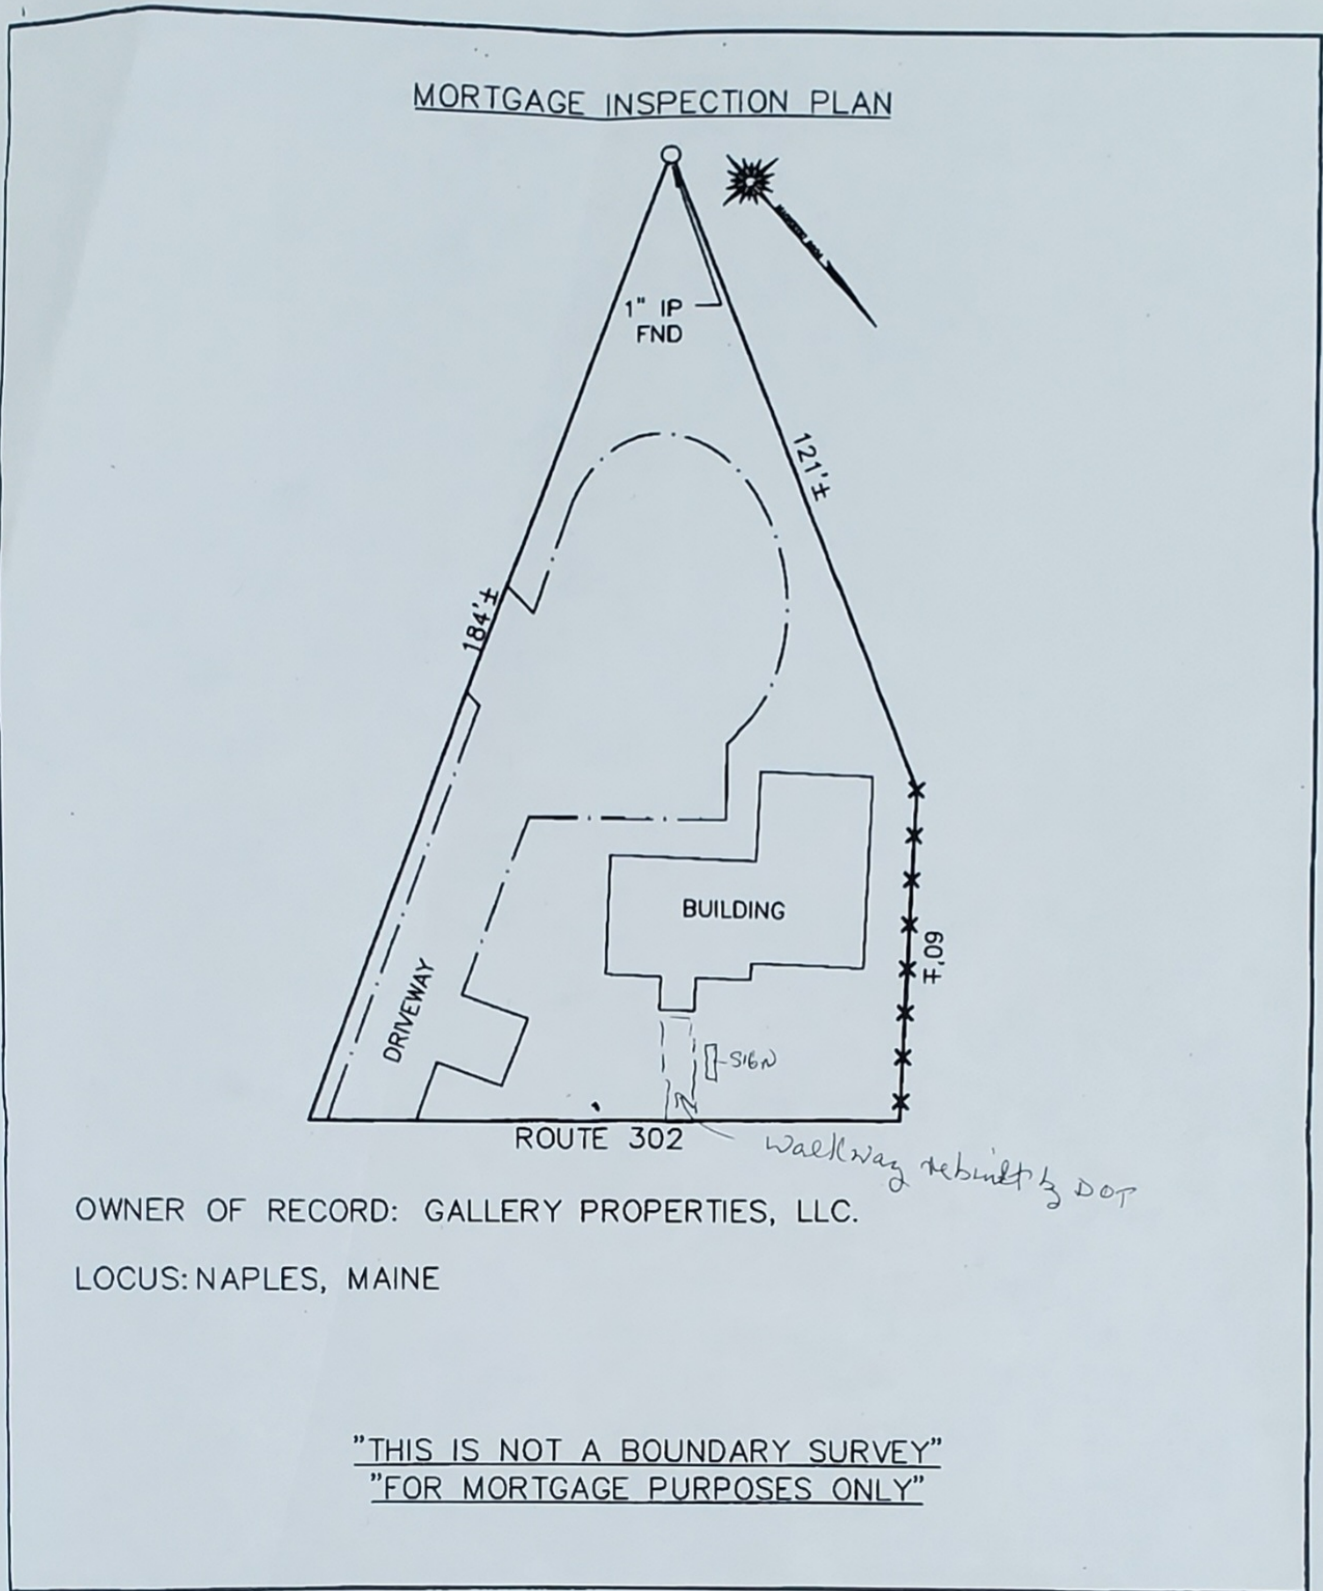 MORTGAGE INSPECTION PLAN
1" IP
FND
121'±
184'±
BUILDING
60'±
DRIVEWAY
SIGN
ROUTE 302
Walkway rebuilt by DOT
OWNER OF RECORD: GALLERY PROPERTIES, LLC.
LOCUS: NAPLES, MAINE
"THIS IS NOT A BOUNDARY SURVEY"
"FOR MORTGAGE PURPOSES ONLY"